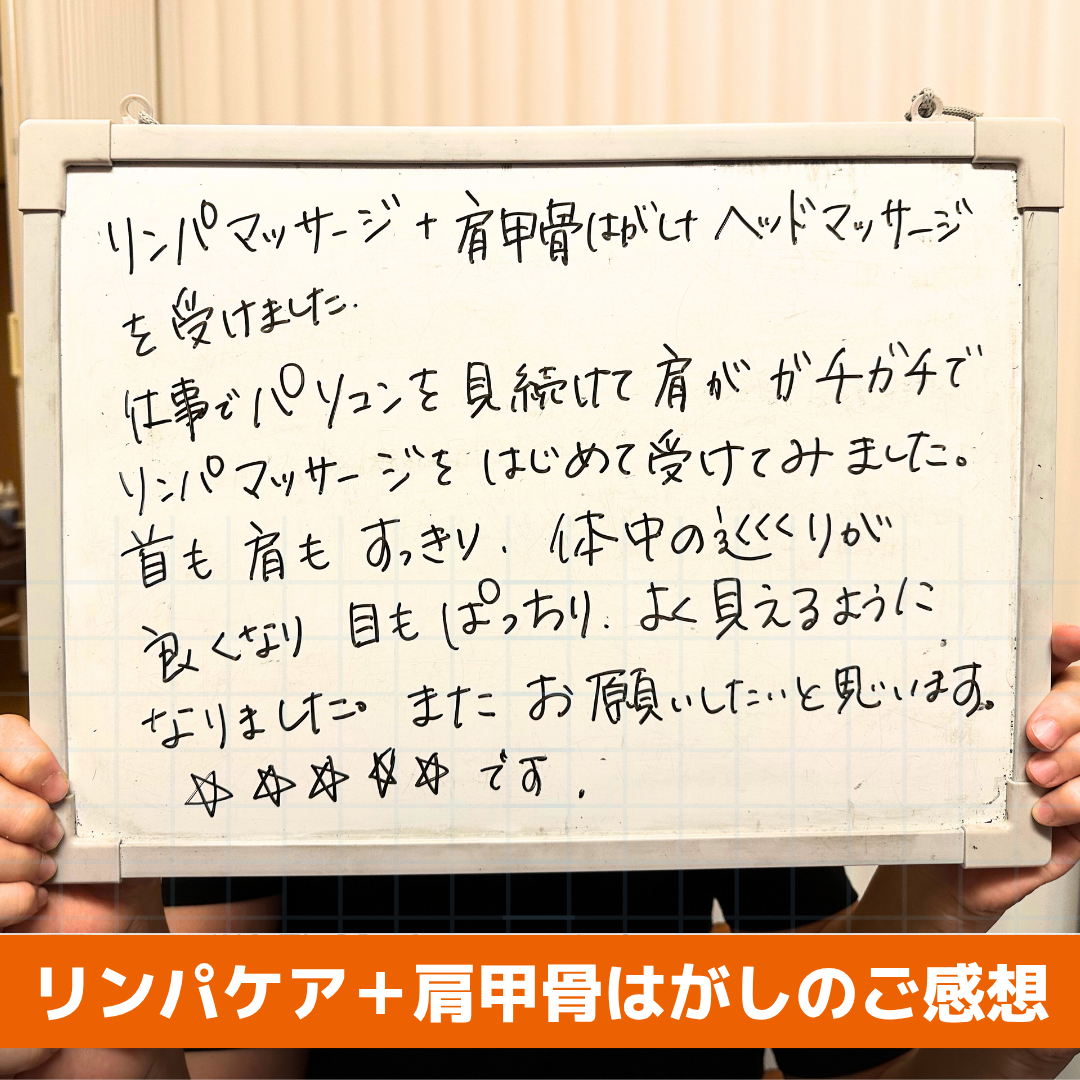 リンパマッサージ+肩甲骨はがし+ヘッドマッサージ
を受けました.
仕事でパソコンを見続けて肩がガチガチで
リンパマッサージをはじめて受けてみました。
首も肩もすっきり.体中の巡くくりが
良くなり目もぱっちり.よく見えるように
なりました。またお願いしたいと思います。
☆☆☆☆☆です.
リンパケア+肩甲骨はがしのご感想